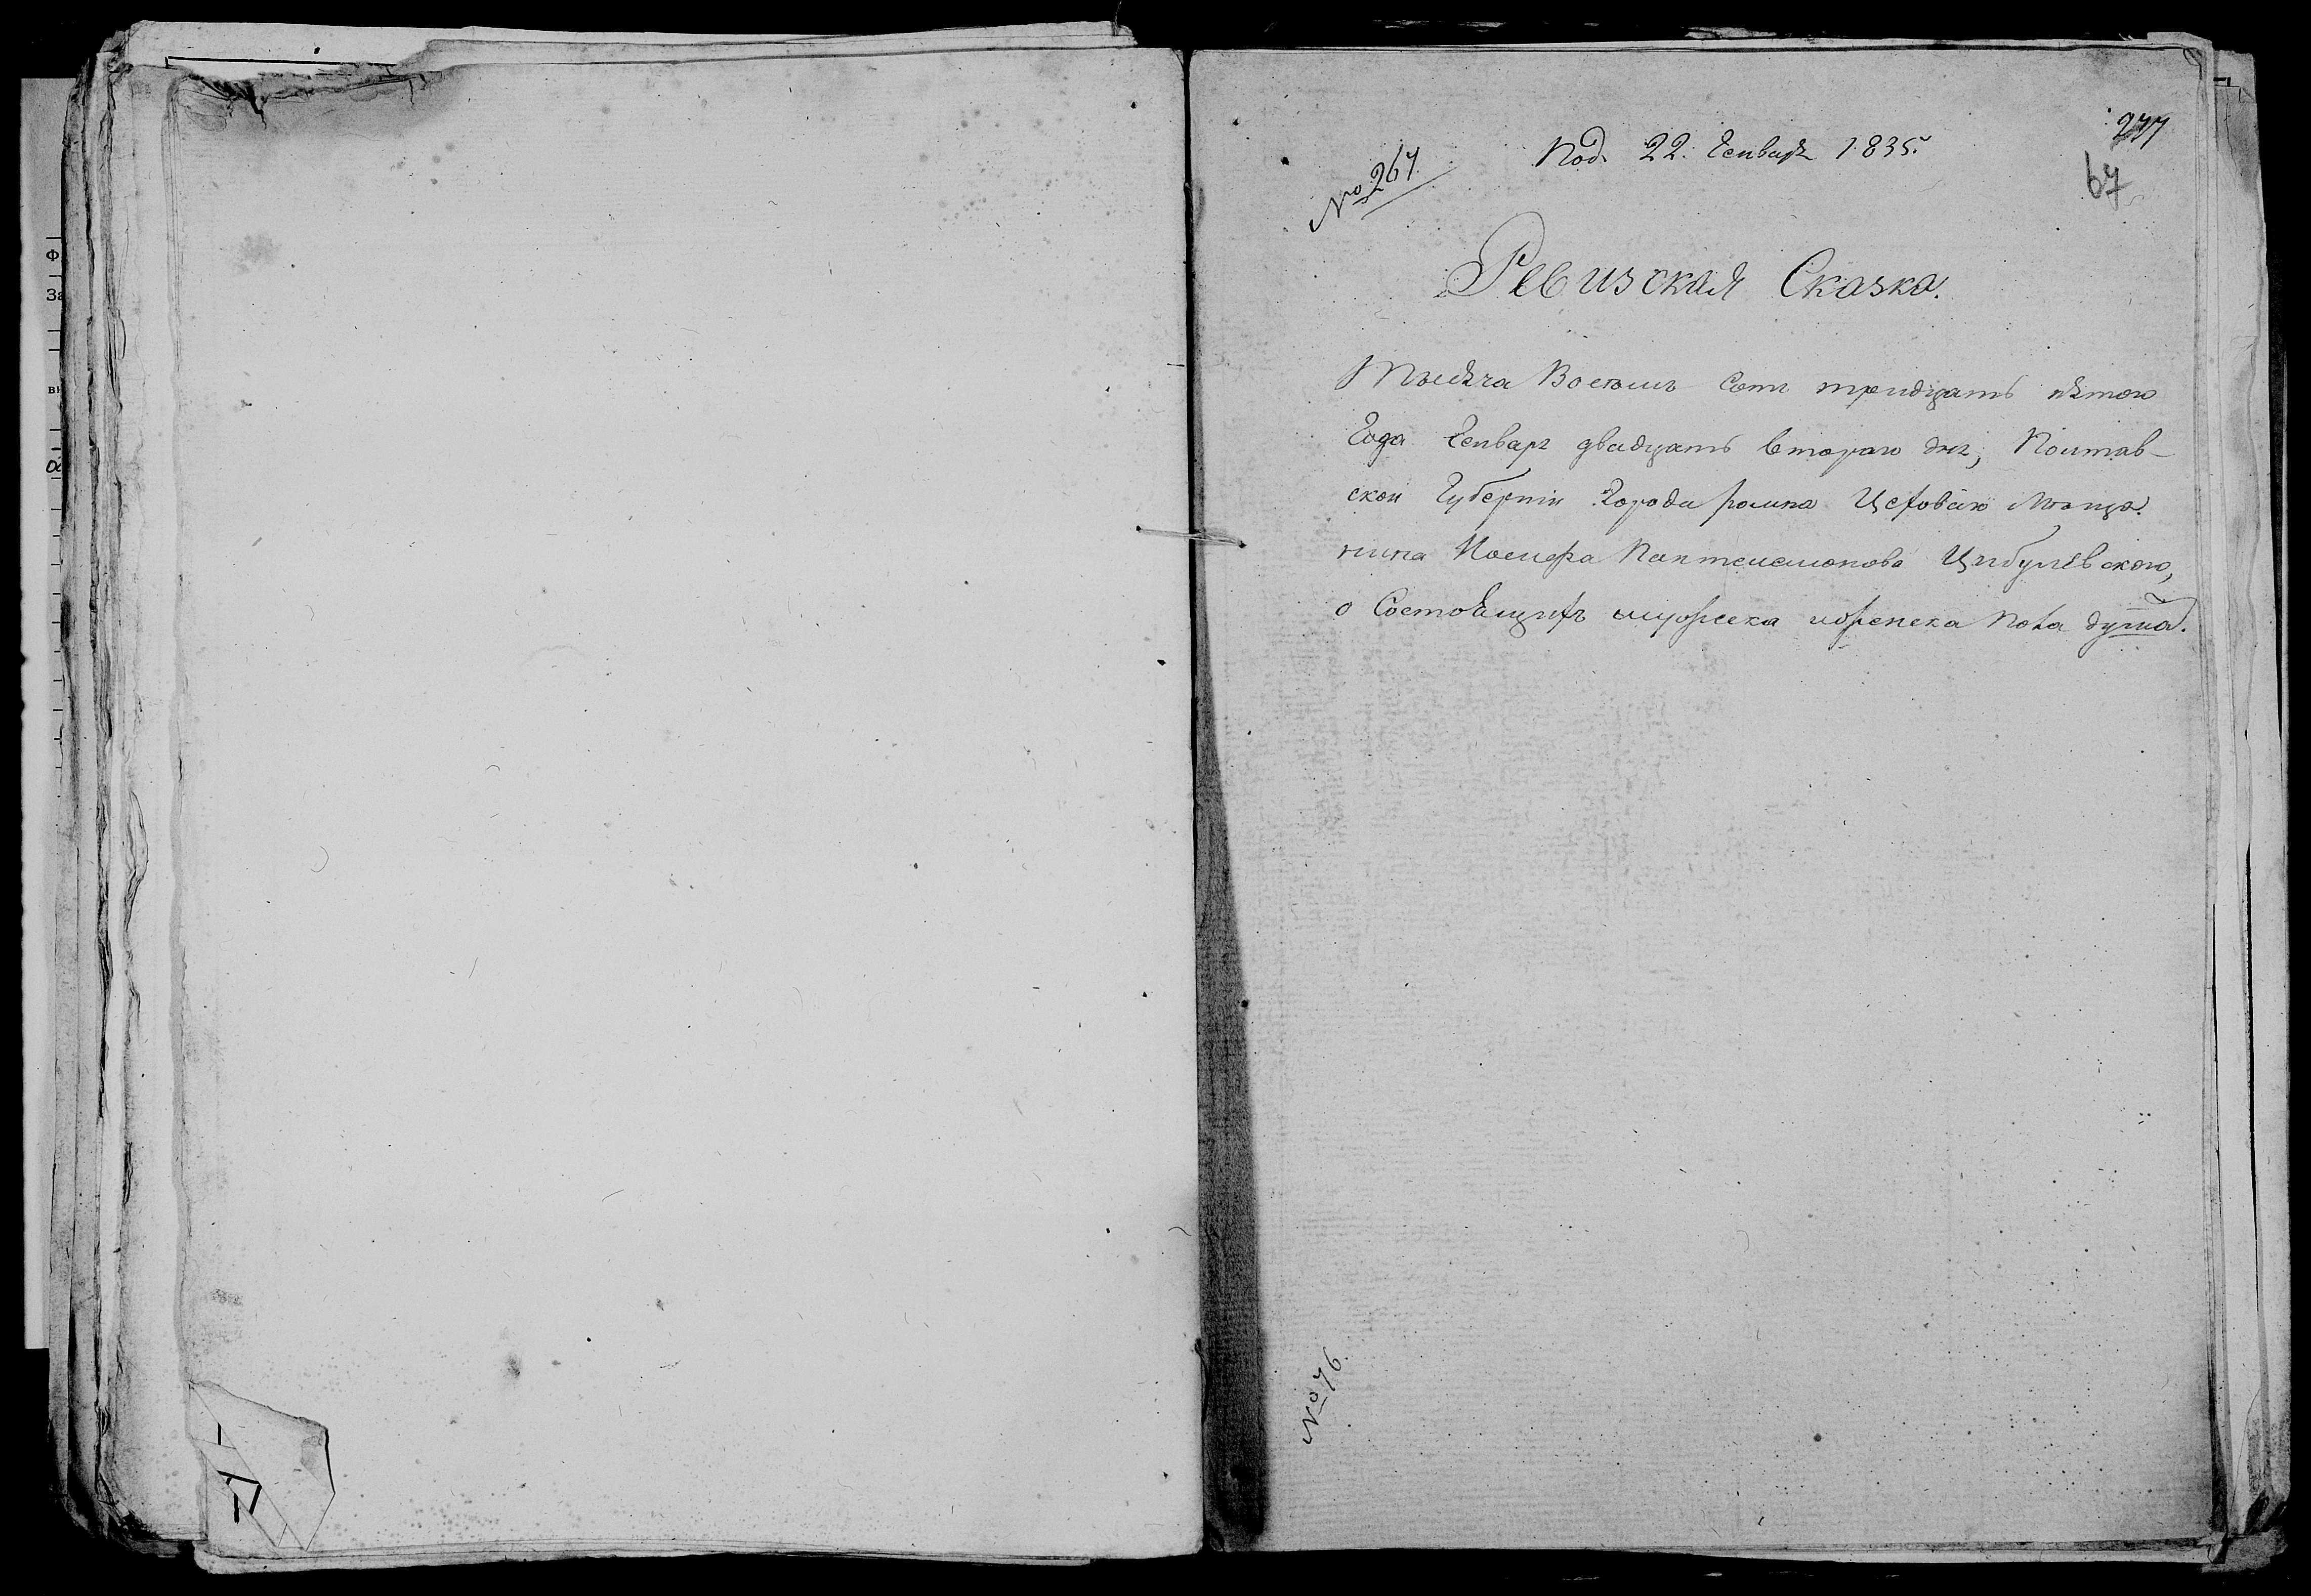 277
№ 267.
Под. 22. Генваря 1835.
67
Ревизская Сказка.
Тысяча Восемь Сотъ тридцать пятого
Года Генваря двадцать второго дня, Полтав-
ской Губернии Города Ромна Цеховаго Меща-
нина Иосифа Пантелеимонова Цибулевского,
о Состоящихъ мужеска и женска пола душа.
№ 76.
Ф
За
вн